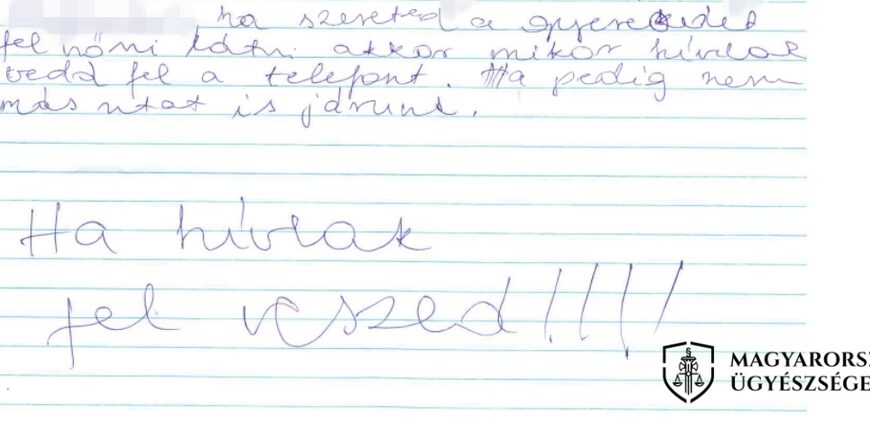 ha szereted a gyerekedet
fel nőni látni akkor mikor hívlak
vedd fel a telefont. Ha pedig nem
más utat is járunk.
Ha hívlak
fel veszed!!!!!
MAGYARORSZ
ÜGYÉSZSÉGE